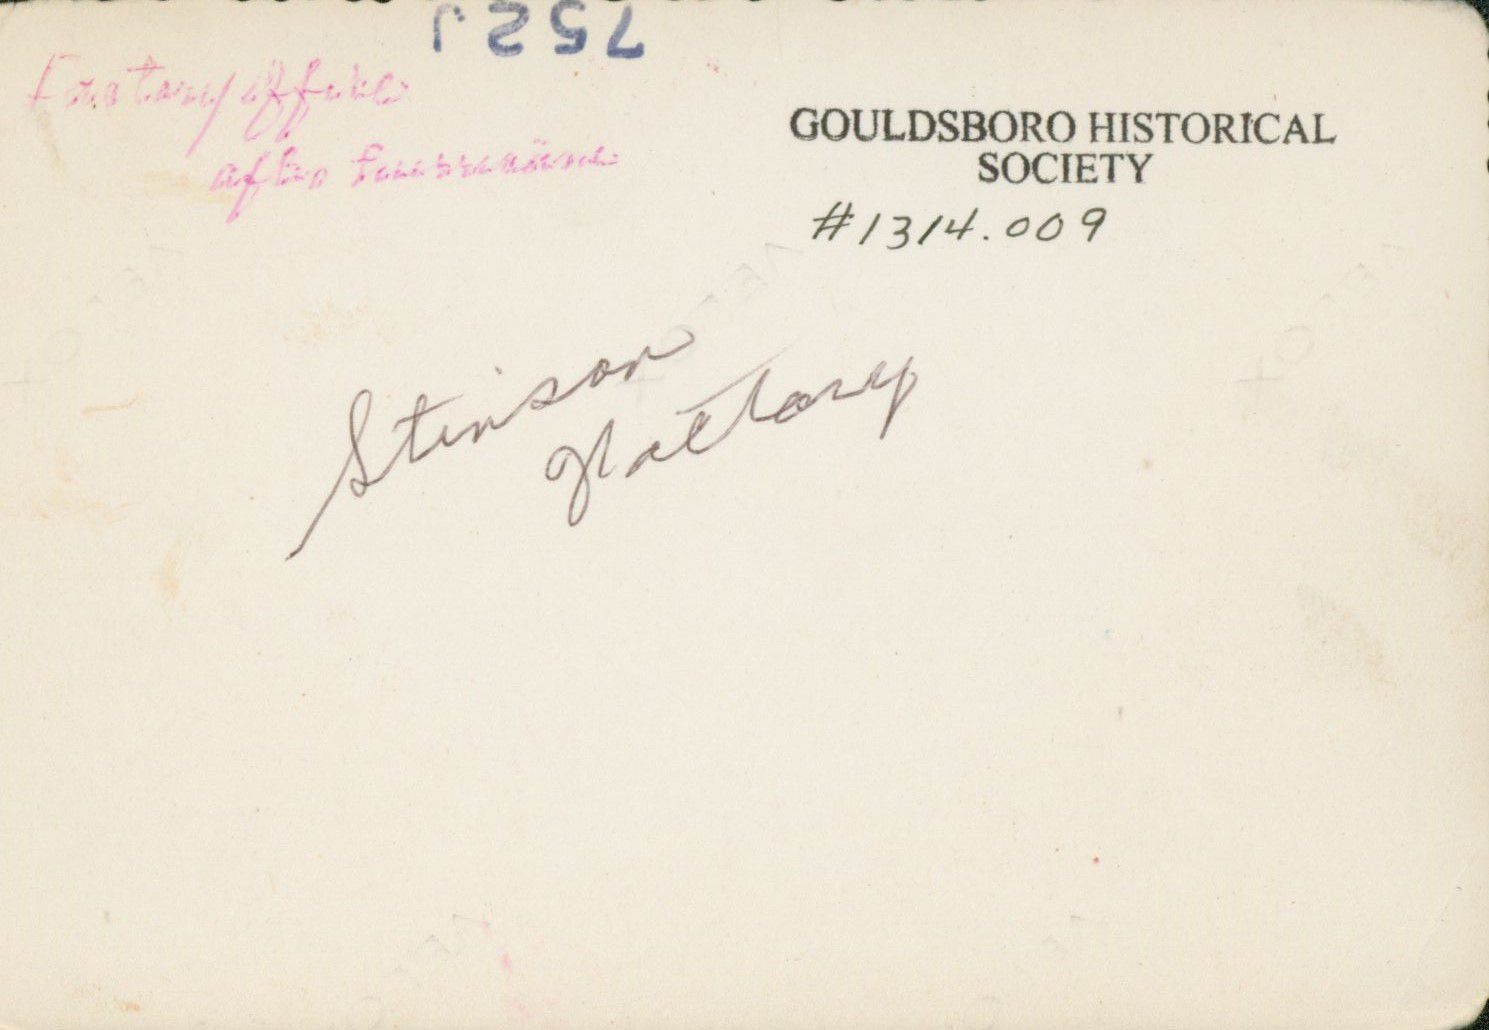 752J
Factory office
after
GOULDSBORO HISTORICAL
SOCIETY
#1314.009
Stinson
Factory